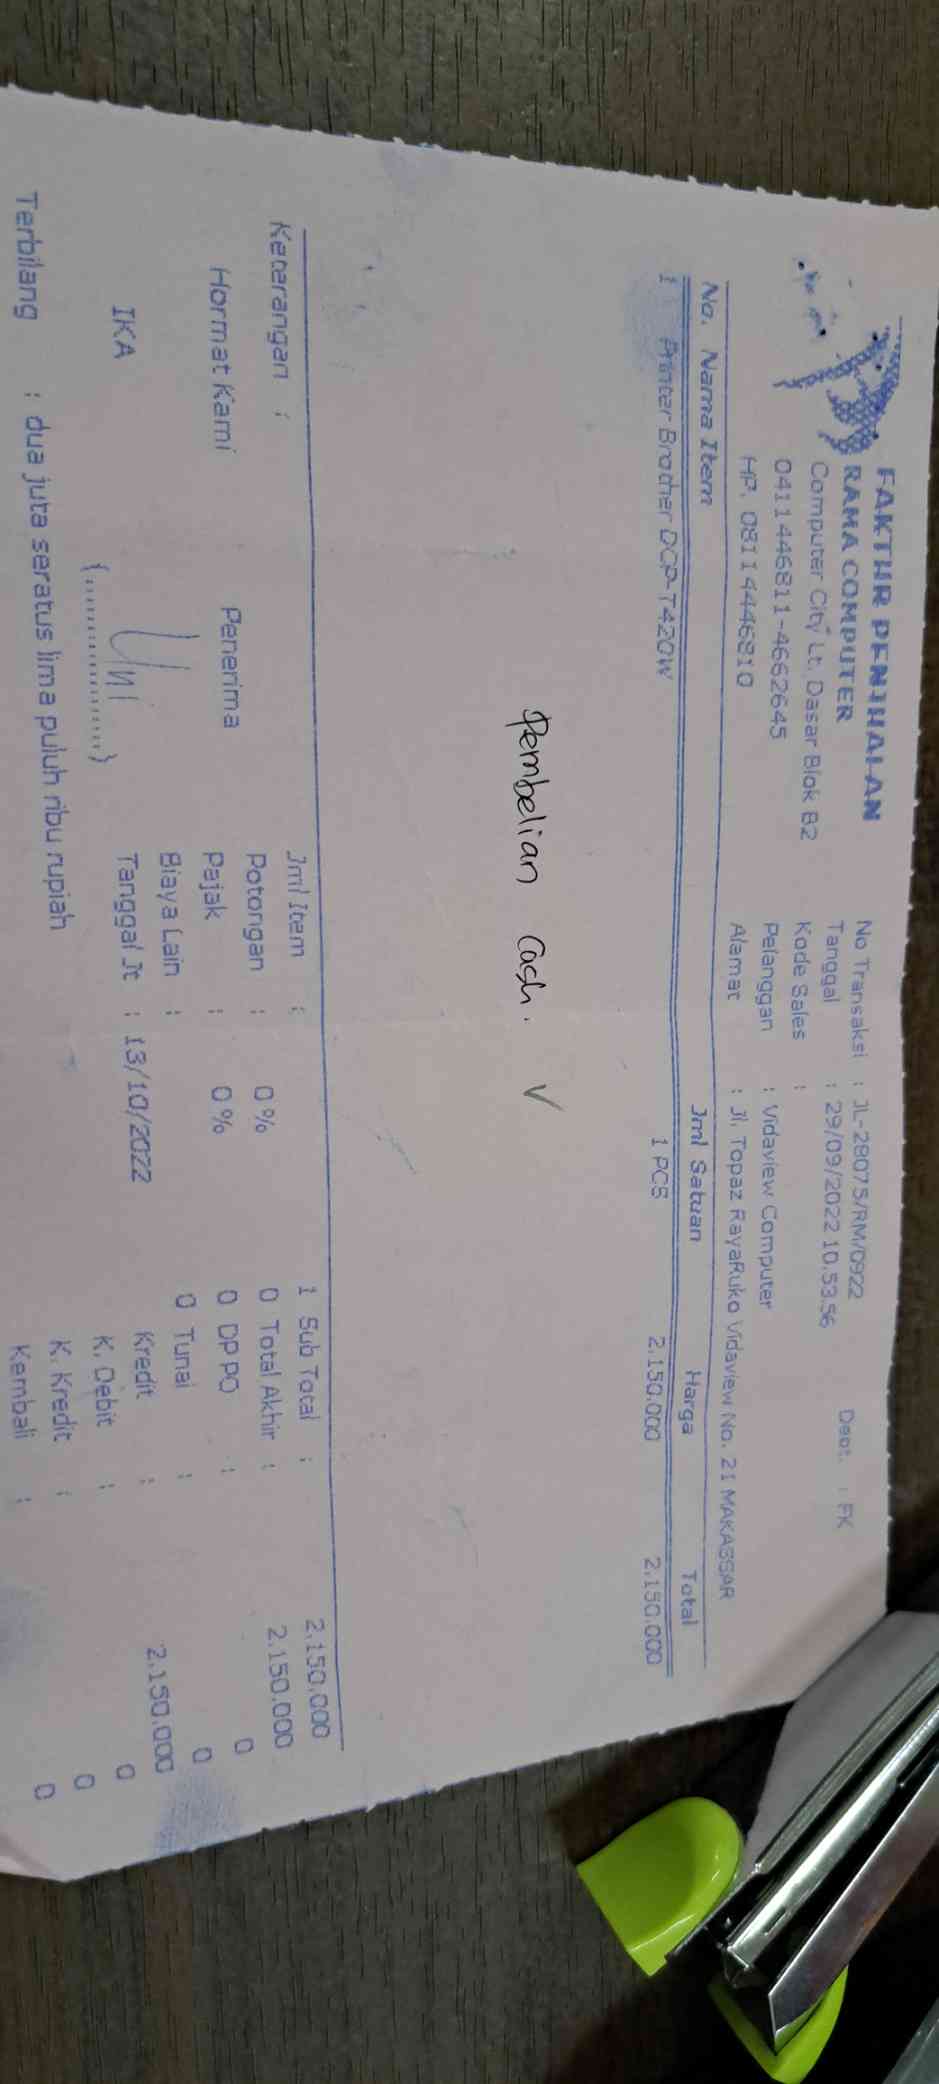 FAKTUR PENJUALAN
RAMA COMPUTER
Computer City Lt. Dasar Blok B2
0411446811-4662645
HP. 08114446810
No Transaksi : JL-28075/RM/0922
Tanggal : 29/09/2022 10.53.56
Dept. : FK
Kode Sales :
Pelanggan : Vidaview Computer
Alamat : Jl. Topaz RayaRuko Vidaview No. 21 MAKASSAR
No. Nama Item Jml Satuan Harga Total
1 Printer Brother DCP-T420W 1 PCS 2.150.000 2.150.000
Pembelian Cash. ✓
Keterangan :
Hormat Kami
Penerima
IKA
Uni
(..................)
Jml Item : 1
Potongan : 0% 0
Pajak : 0% 0
Biaya Lain : 0
Tanggal Jt : 13/10/2022
Sub Total : 2.150.000
Total Akhir : 2.150.000
DP PO : 0
Tunai : 0
Kredit : 2.150.000
K. Debit : 0
K. Kredit : 0
Kembali : 0
Terbilang : dua juta seratus lima puluh ribu rupiah